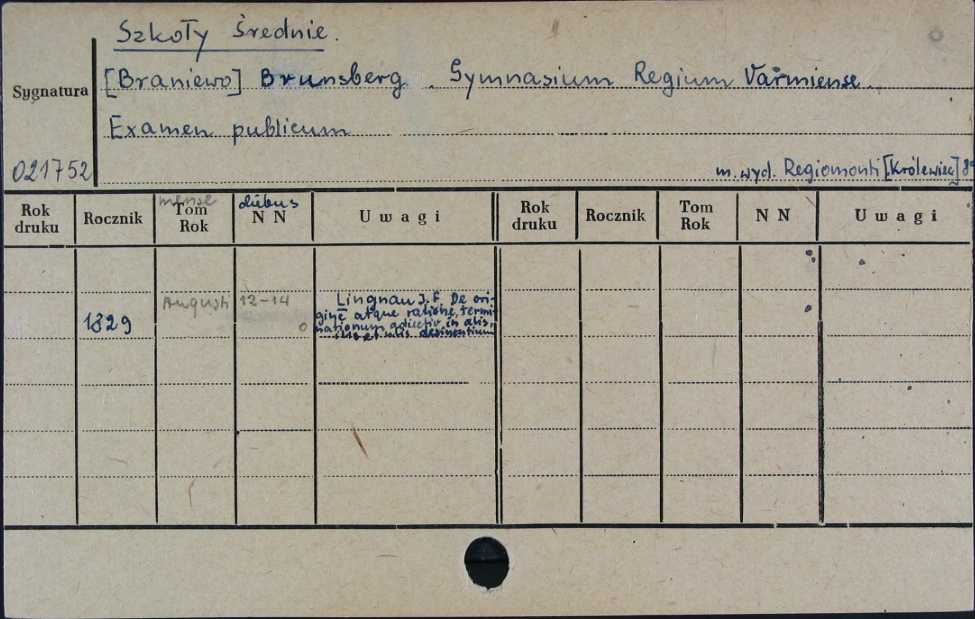 Szkoły Średnie.
[Braniewo] Brunsberg. Gymnasium Regium Varmiense.
Sygnatura
Examen publicum
021752
m. wyd. Regiomonti [Królewiec]
Rok druku Rocznik mense Tom Rok diebus N N Uwagi Rok druku Rocznik Tom Rok N N Uwagi
Augusti 12-14 Lingnau J. F. De ori-
1829 gine atque ratione, termi-
nationum adiectiv. in alis,
et desinentium